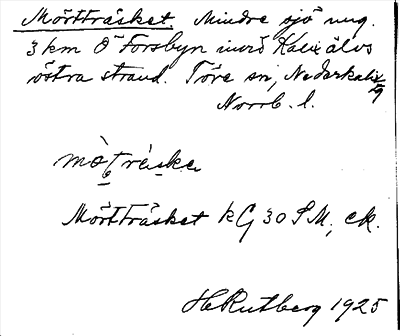 Mörtträsket Mindre sjö ung.
3 km Ö Forsbyn invid Kalix älvs
östra strand. Töre sn, Nederkalix
Norrb. l.
Mörtträsket kG 30 SM, ek.
H Rutberg 1925